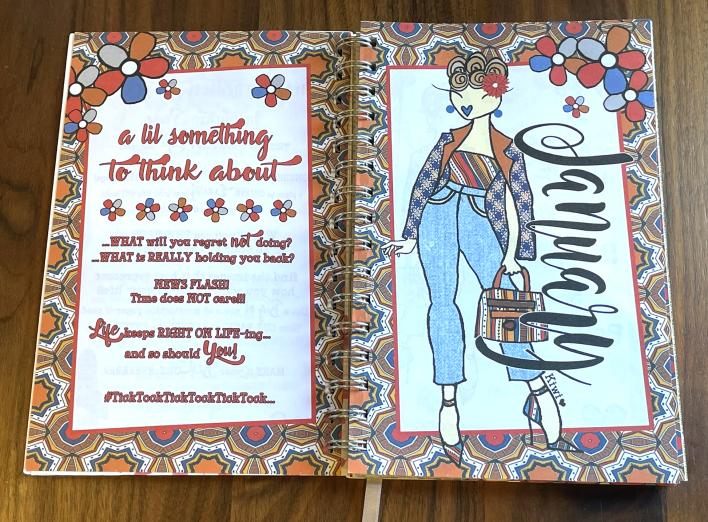 a lil something
to think about
...WHAT will you regret not doing?
...WHAT is REALLY holding you back?
NEWS FLASH!
Time does NOT care!!!
Life keeps RIGHT ON LIFE-ing...
and so should You!
#TickTockTickTockTickTock...
January
Kiwi